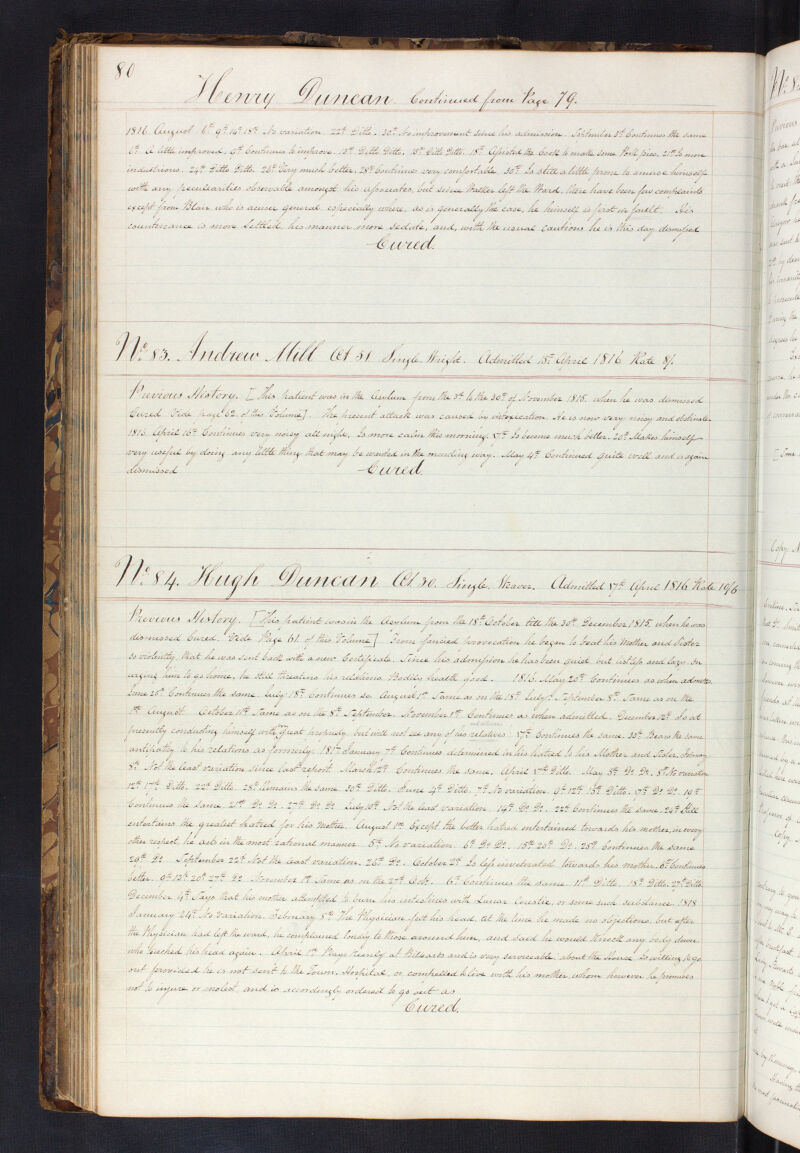 80
Henry Duncan. Continued from Page 79.
1816. August 6th 9th 14th 18th No variation. 22nd Ditto. 30th No improvement since his admission. September 3d Continues the same
6th A little improved. 9th Continues to improve. 12th Ditto Ditto. 15th Ditto Ditto. 18th Assisted the Cook to make some Pork pies. 21st Is more
industrious. 24th Ditto Ditto. 26th Very much better. 28th Continues very comfortable. 30th Is still a little prone to amuse himself
with any peculiarities observable amongst his associates, but since left the Ward, there have been few complaints
except from Blair who is accuser general especially where, as is generally the case, he himself is first in fault. His
countenance is more settled, his manner more sedate, and, with the usual cautions he is this day dismissed
Cured.
No. 83. Andrew Mill Æt 31 Single. Wright. Admitted 15th April 1816 Rate 8/.
Previous History. [This patient was in the Asylum from the 3d to the 30th of November 1815, when he was dismissed
Cured Vide page 62 of this Volume]. The present attack was caused by intoxication. He is now very noisy and obstinate.
1816. April 16th Continues very noisy all night. Is more calm this morning. 17th Is become much better. 20th Makes himself
very useful by doing any little thing that may be wanted in the mending way. May 4th Continued quite well and is again
dismissed Cured.
No. 84. Hugh Duncan Æt 30. Single. Weaver. Admitted 17th April 1816 Rate 10/6
Previous History. [This patient was in the Asylum from the 18th October till the 30th December 1815, when he was
dismissed Cured. Vide Page 61 of this Volume] From fancied provocation he began to beat his Mother and Sister
so violently, that he was sent back with a new Certificate. Since his admission he has been quiet but listless and lazy. On
urging him to go home, he still threatens his relations. Bodily health good. 1816. May 20th Continues as when admitted
June 25th Continues the same. July 18th Continues so. August 1st Same as on the 18th July. September 8th Same as on the
1st August. October 11th Same as on the 8th September. November 1st Continues as when admitted. December 2d Is at
presently conducting himself with great propriety but will not see any of his relatives 17th Continues the same. 30th Bears the same
antipathy to his relations as formerly. 1817 January 7th Continues determined in his hatred to his Mother and Sister. February
5th Not the least variation since last report. March 12th Continues the same. April 17th Ditto. May 5th Do Do. 8th No variation
12th 17th Ditto. 22nd Ditto. 28th Remains the same. 30th Ditto. June 4th Ditto. 7th No variation. 9th 12th 15th Ditto. 17th Do Do. 19th
Continues the same. 21st Do Do. 27th Do Do. July 10th Not the least variation. 14th Do Do. 22nd Continues the same. 24th Still
entertains the greatest hatred for his mother. August 1st Except the bitter hatred entertained towards his mother, in every
other respect, he acts in the most rational manner. 5th No variation. 6th Do Do. 15th 20th Do. 25th Continues the same
29th Do. September 22nd Not the least variation. 26th Do. October 2d Is less inveterated towards his mother. 6th Continues
better. 9th 13th 20th 27th Do November 1st Same as on the 27th Octr. 6th Continues the same. 11th Ditto. 18th Ditto. 27th Ditto.
December 4th Says that his mother attempted to burn his intestines with Lunar Caustic, or some such substance. 1818
January 24th No variation. February 5th The Physician felt his head, at the time he made no objections, but after
the Physician had left the ward, he complained loudly to those around him, and said he would knock any body down
who touched his head again. April 1st Plays keenly at Billiards and is very serviceable about the House. Is willing to go
out provided he is not sent to the Town's Hospital, or compelled to live with his mother whom however he promises
not to injure or molest and is accordingly ordered to go out as
Cured.